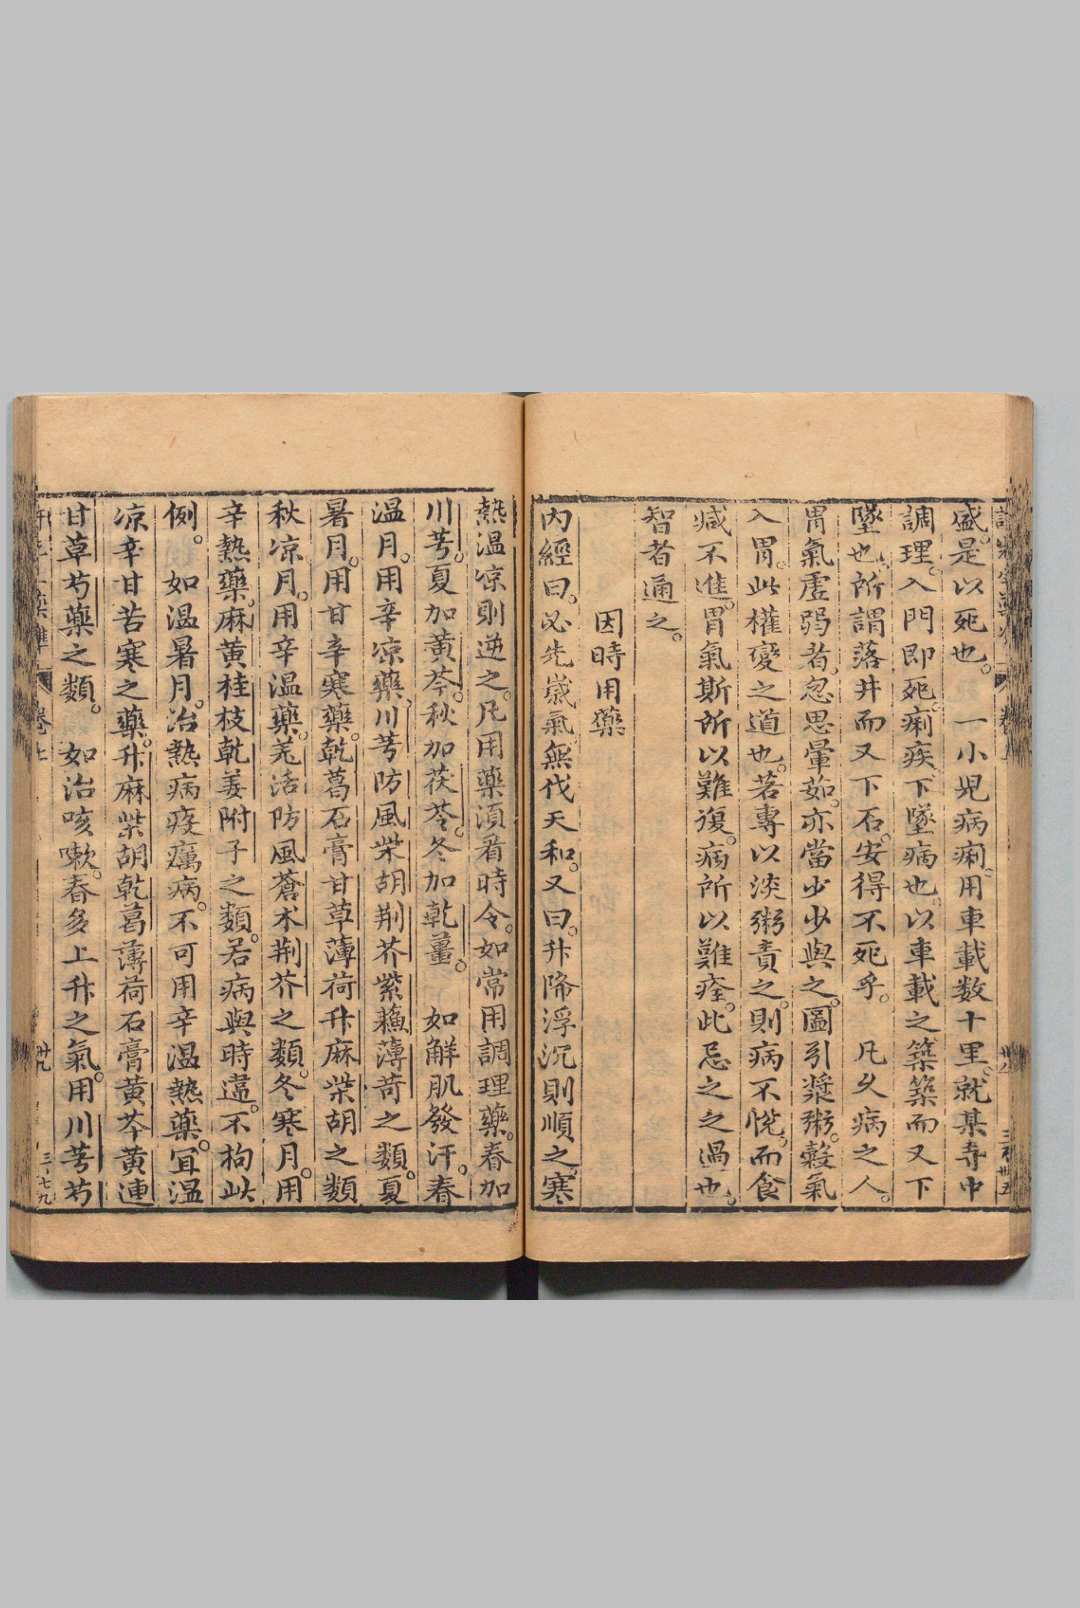 盛。是以死也。 一小児病痢。用車載数十里。就某寺中
調理。入門即死。痢疾下墜病也。以車載之築築而又下
墜也。所謂落井而又下石。安得不死乎。 凡久病之人。
胃氣虚弱者。忽思葷茹。亦當少少與之。圖引漿粥。穀氣
入胃。此權變之道也。若專以淡粥責之。則病不悅。而食
减不進。胃氣斯所以難復。病所以難痊。此忌之之過也。
智者通之。
因時用藥
内經曰。必先嵗氣。無伐天和。又曰。升降浮沉則順之。寒
熱温凉則逆之。凡用藥湏看時令。如常用調理藥。春加
川芎。夏加黄芩。秋加茯苓。冬加乾薑。 如觧肌發汗。春
温月。用辛凉藥。川芎防風柴胡荆芥紫蘓薄苛之類。夏
暑月。用甘辛寒藥。乾葛石膏甘草薄荷升麻柴胡之類
秋凉月。用辛温藥。羗活防風蒼木荆芥之類。冬寒月。用
辛熱藥。麻黄桂枝乾姜附子之類。若病與時違。不拘此
例。 如温暑月。治熱病疫癘病。不可用辛温熱藥。宜温
凉辛甘苦寒之藥。升麻柴胡乾葛薄荷石膏黄芩黄連
甘草芍藥之類。 如治咳嗽。春多上升之氣。用川芎芍